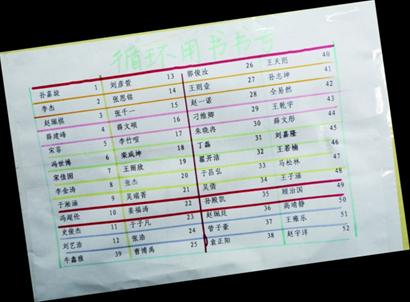 循环用书书号
孙嘉旋 1 刘彦萱 13 郭俊汝 26 王天煦 40
李杰 2 张思铭 14 王则壹 27 孙志坤 41
赵珮祺 3 张子一 15 赵一诺 28 仝易然 42
薛建峰 4 薛文硕 16 刁维卿 29 王乾宇 43
宋蓉 5 李竹喧 17 朱晓冉 30 薛文彤 44
冯世博 6 栾斌坤 18 丁磊 31 刘嘉隆 45
宋佳囡 7 王雨欣 19 翟开浩 32 王若楠 46
李金涛 8 张杰 20 于昌弘 33 马松林 47
于湘涵 9 吴瑞菁 21 吴倩 34 王子涵 48
冯超伦 10 姜福涛 22 孙殿凯 35 顾治国 49
史俊杰 11 于子凡 23 赵珮廷 36 高靖静 50
刘艺浩 12 张浩 24 管子豪 37 王雍乐 51
牛鑫雅 39 曹博禹 25 袁正阳 38 赵宇洋 52